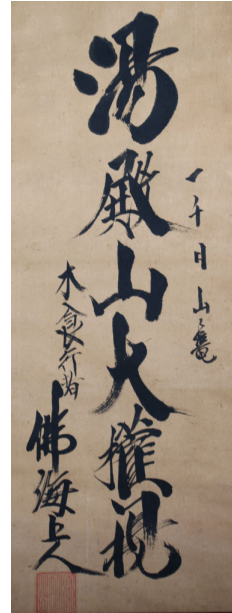 一千日山籠
湯殿山大權現
木食行者
佛海上人